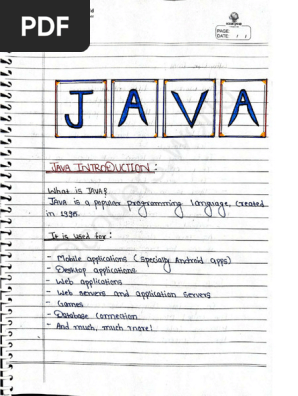 PDF
PAGE:
DATE: / /
JAVA
JAVA INTRODUCTION:
What is JAVA?
JAVA is a popular programming language, created
in 1995.
It is used for:
- Mobile applications (specially Android apps)
- Desktop applications
- Web applications
- Web servers and application servers
- Games
- Database connection
- And much, much more!